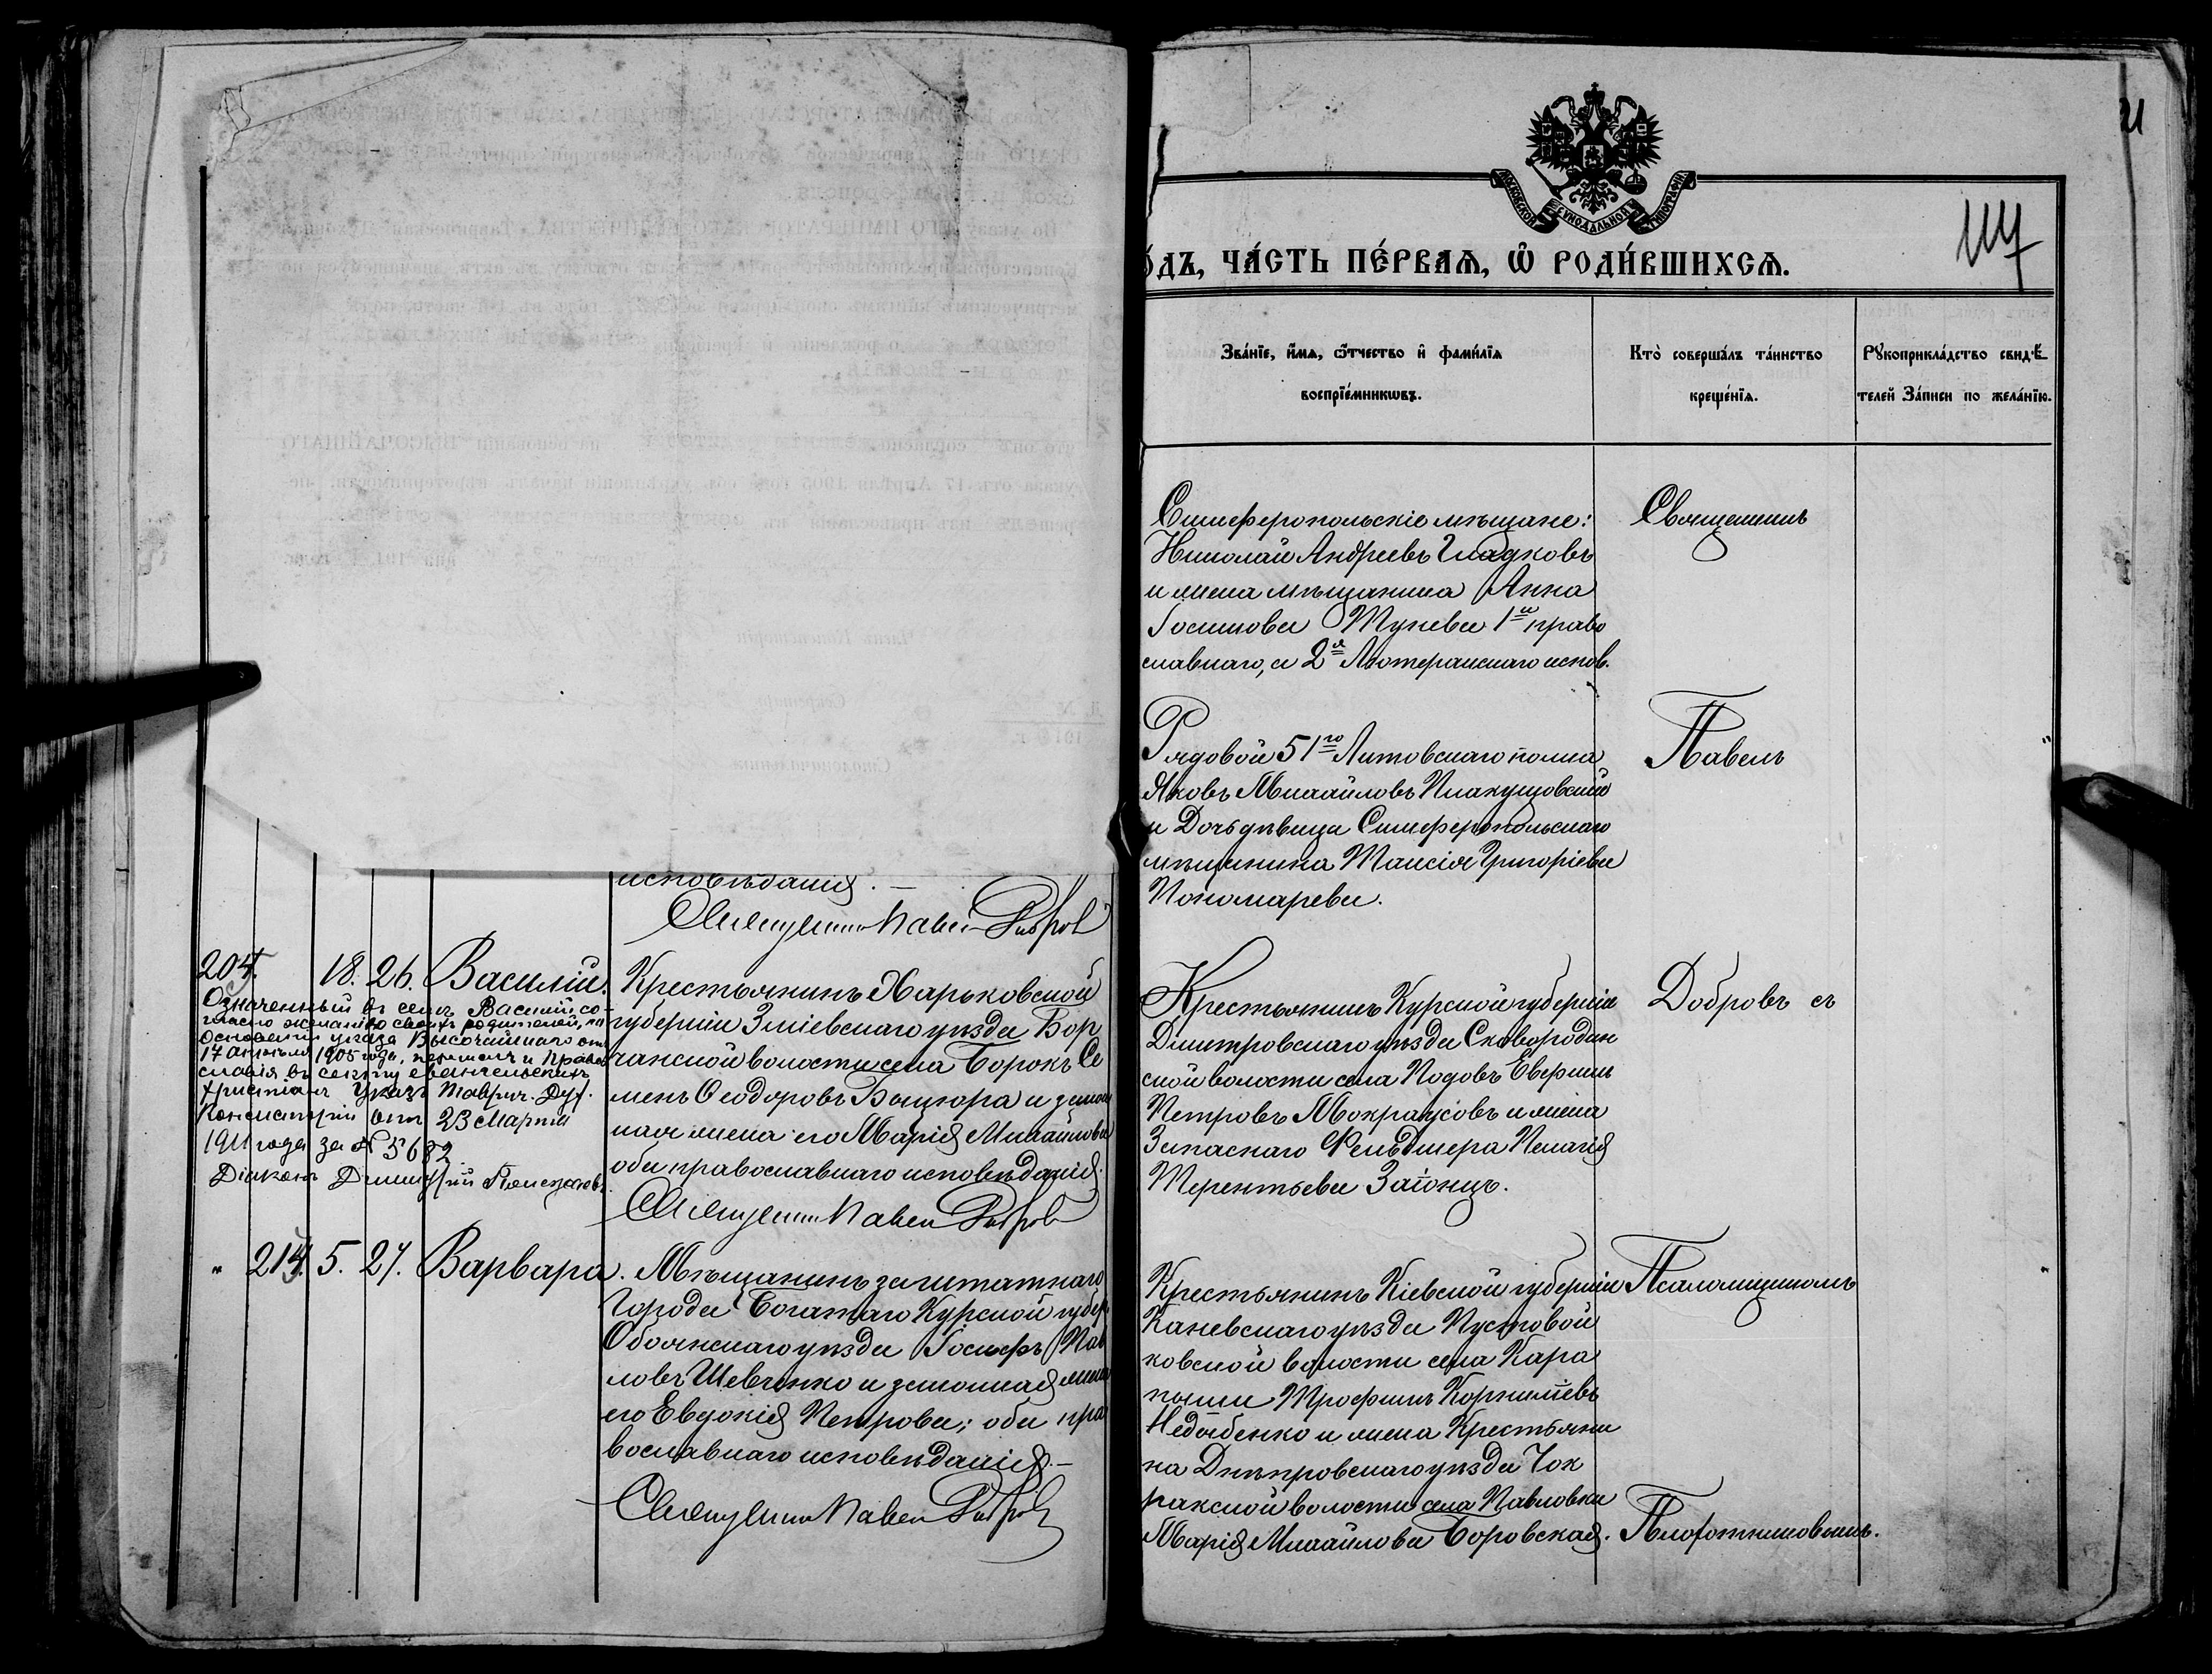 исповѣданія. —
Священникъ Павелъ Добровъ
204. 18. 26. Василій.
Означенный въ семъ Василій, со-
гласно желанію своихъ родителей, на
основаніи указа Высочайшаго отъ
17 апрѣля 1905 года, перешелъ изъ Право
славія въ секту евангельскихъ
христіанъ Указъ Таврич. Дух.
Консисторіи отъ 23 Марта
1911 года за № 5682
Діаконъ Димитрій
Крестьянинъ Харьковской
губерніи Зміевскаго уѣзда Бор
чанской волости села Борокъ Се
менъ Ѳеодоровъ и закон
ная жена его Марія Михайлова
оба православнаго исповѣданія.
Священникъ Павелъ Добровъ
" 214. 5. 27. Варвара.
Мѣщанинъ заштатнаго
города Богатаго Курской губер.
Обоянскаго уѣзда Іосифъ Пав
ловъ Шевченко и законная жена
его Евдокія Петрова; оба пра
вославнаго исповѣданія. —
Священникъ Павелъ Добровъ
21
МОСКОВСКОЙ СѴНОДАЛЬНОЙ ТИПОГРАФІИ
117
ОДЪ, ЧА́СТЬ ПЕ́РВАѦ, Ѡ РОДИ́ВШИХСѦ.
Зва́нїе, и́мѧ, ѻ́тчество и фами́лїѧ
воспрїе́мникѡвъ.
Кто̀ соверша́лъ та́инство
креще́нїѧ.
Рꙋкоприкла́дство свидѣ́-
телей За́писи по жела́нїю.
Симферопольскіе мѣщане:
Николай Андреевъ Гладковъ
и жена мѣщанина Анна
Іосифова 1й право
славнаго, а 2я Лютеранскаго испов.
Священникъ
Рядовой 51го Литовскаго полка
Яковъ Михайловъ
и Дочь дѣвица Симферопольскаго
мѣщанина Таисія Григоріева
Пономарева.
Павелъ
Крестьянинъ Курской губерніи
Димитровскаго уѣзда Сковородин
ской волости села Подовъ
Петровъ Мокроусовъ и жена
Запаснаго Фельдшера Пелагія
Терентьева Заіонцъ.
Добровъ съ
Крестьянинъ Кіевской губерніи
Каневскаго уѣзда Пустовой
ковской волости села Кара
пыши Трофимъ Корниліевъ
Недыбенко и жена Крестьяни
на Днѣпровскаго уѣзда Чок
ракской волости села Павловки
Марія Михайлова Боровская.
Псаломщикомъ
Плотниковымъ.